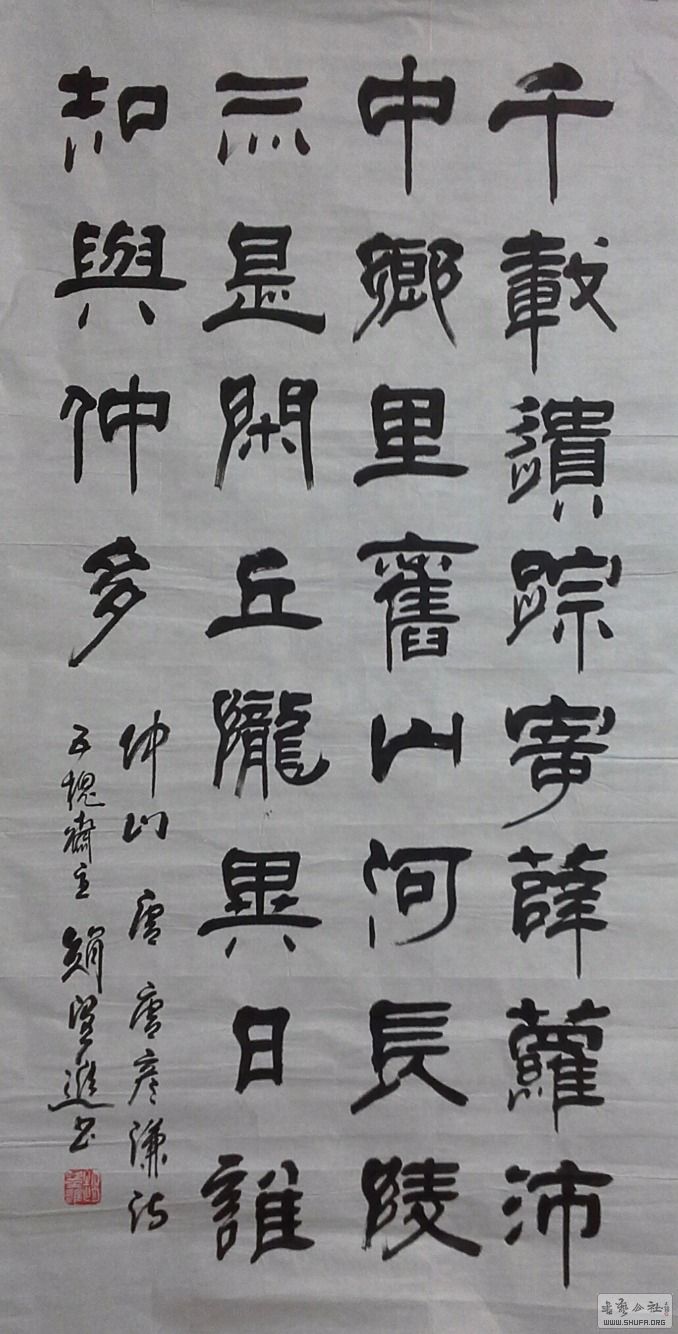 千載遺踪寄薜蘿沛
中鄉里舊山河長陵
亦是閑丘隴異日誰
知與仲多
仲山 唐 唐彦謙詩
五槐齋主 趙望進书
书艺公社
WWW.SHUFA.ORG